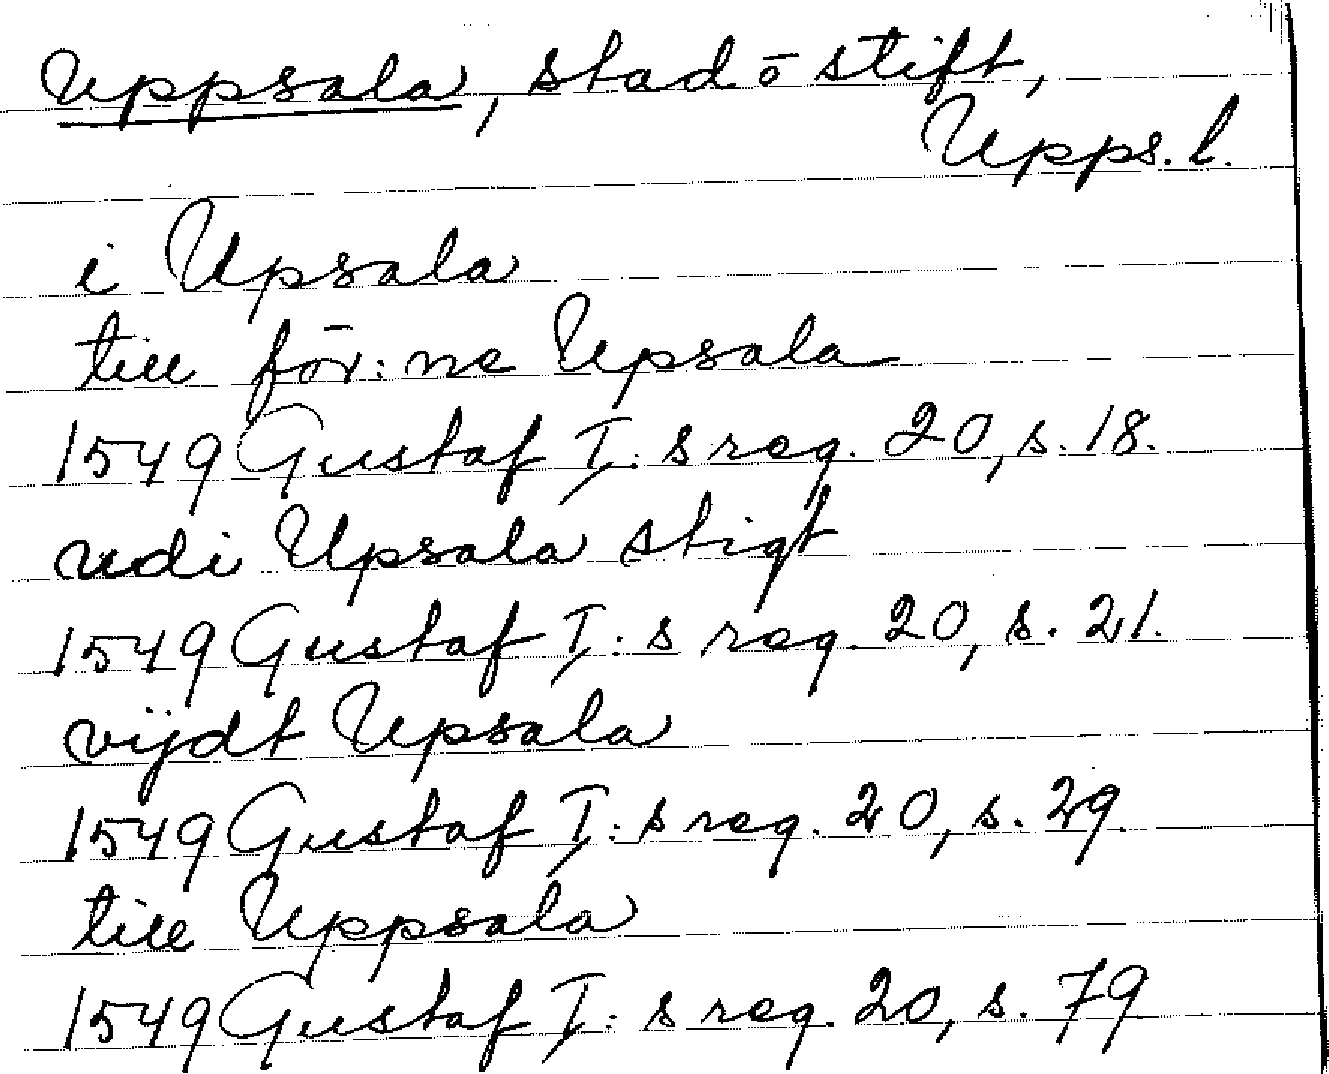 Uppsala, stad o stift,
Upps. l.
i Upsala
till för:ne Upsala
1549 Gustaf I:s reg. 20, s. 18.
udi Upsala stigt
1549 Gustaf I:s reg. 20, s. 21.
vijdt Upsala
1549 Gustaf I:s reg. 20, s. 29.
till Uppsala
1549 Gustaf I:s reg. 20, s. 79